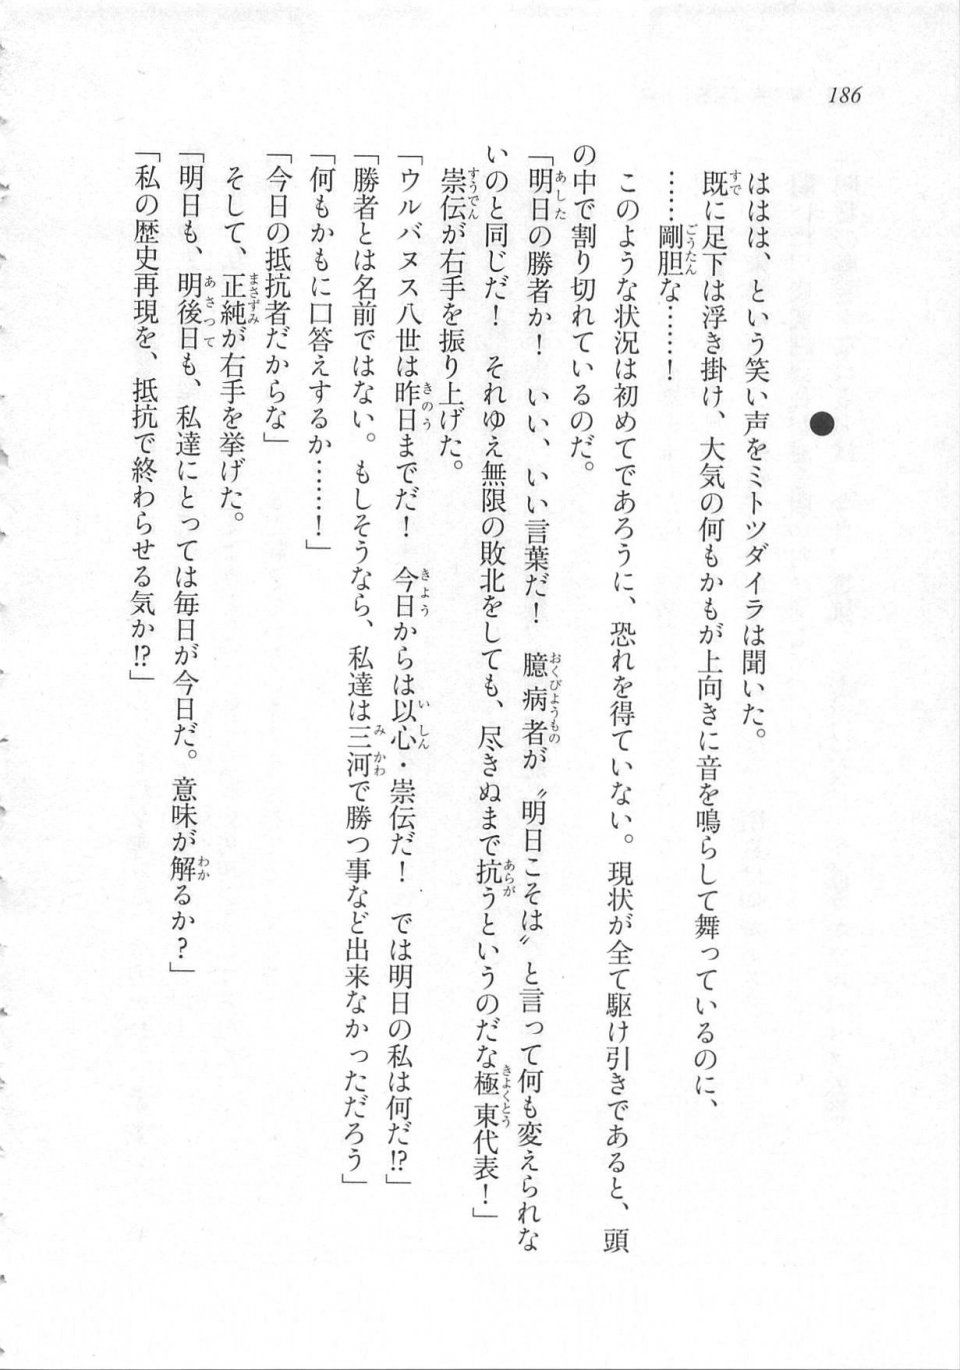 186
●
ははは、という笑い声をミトツダイラは聞いた。
既に足下は浮き掛け、大気の何もかもが上向きに音を鳴らして舞っているのに、
……剛胆な……！
このような状況は初めてであろうに、恐れを得ていない。現状が全て駆け引きであると、頭
の中で割り切れているのだ。
「明日の勝者か！　いい、いい言葉だ！　臆病者が〝明日こそは〟と言って何も変えられな
いのと同じだ！　それゆえ無限の敗北をしても、尽きぬまで抗うというのだな極東代表！」
崇伝が右手を振り上げた。
「ウルバヌス八世は昨日までだ！　今日からは以心・崇伝だ！　では明日の私は何だ⁉」
「勝者とは名前ではない。もしそうなら、私達は三河で勝つ事など出来なかっただろう」
「何もかもに口答えするか……！」
「今日の抵抗者だからな」
そして、正純が右手を挙げた。
「明日も、明後日も、私達にとっては毎日が今日だ。意味が解るか？」
「私の歴史再現を、抵抗で終わらせる気か⁉」